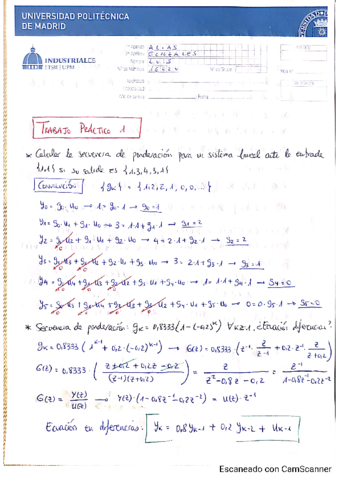 UNIVERSIDAD POLITÉCNICA
DE MADRID
ARIAS
GONZALES
INDUSTRIALES
ETSII | UPM
LUIS
TRABAJO PRÁCTICO 1
* Calcular la secuencia de ponderación para un sistema lineal ante la entrada
{1,1} si su salida es {1,3,4,3,1}
Convolución: {gk} = {1,2,2,1,0,0..}
y0 = g0·u0 → 1 = g0·1 → g0=1
y1 = g0·u1 + g1·u0 → 3 = 1·1 + g1·1 → g1=2
y2 = g0·u2 + g1·u1 + g2·u0 → 4 = 2·1 + g2·1 → g2=2
y3 = g0·u3 + g1·u2 + g2·u1 + g3·u0 → 3 = 2·1 + g3·1 → g3=1
y4 = g0·u4 + g1·u3 + g2·u2 + g3·u1 + g4·u0 → 1 = 1·1 + g4·1 → g4=0
y5 = g0·u5 + g1·u4 + g2·u3 + g3·u2 + g4·u1 + g5·u0 → 0 = 0·g5·1 → g5=0
* Secuencia de ponderación: gk = 0,8333(1-(-0,2)^k) ∀k≥1. Ecuación diferencias?
gk = 0,8333 (1^(k-1) + 0,2·(-0,2)^(k-1)) → G(z) = 0,8333 (z^-1 · z/(z-1) + 0,2·z^-1 · z/(z+0,2))
G(z) = 0,8333 · ((z+0,2+0,2z-0,2)/((z-1)(z+0,2))) = z/(z²-0,8z-0,2) = z^-1/(1-0,8z^-1-0,2z^-2)
G(z) = Y(z)/U(z) → Y(z)·(1-0,8z^-1-0,2z^-2) = U(z)·z^-1
Ecuación en diferencias: yk = 0,8yk-1 + 0,2 yk-2 + uk-1
Escaneado con CamScanner